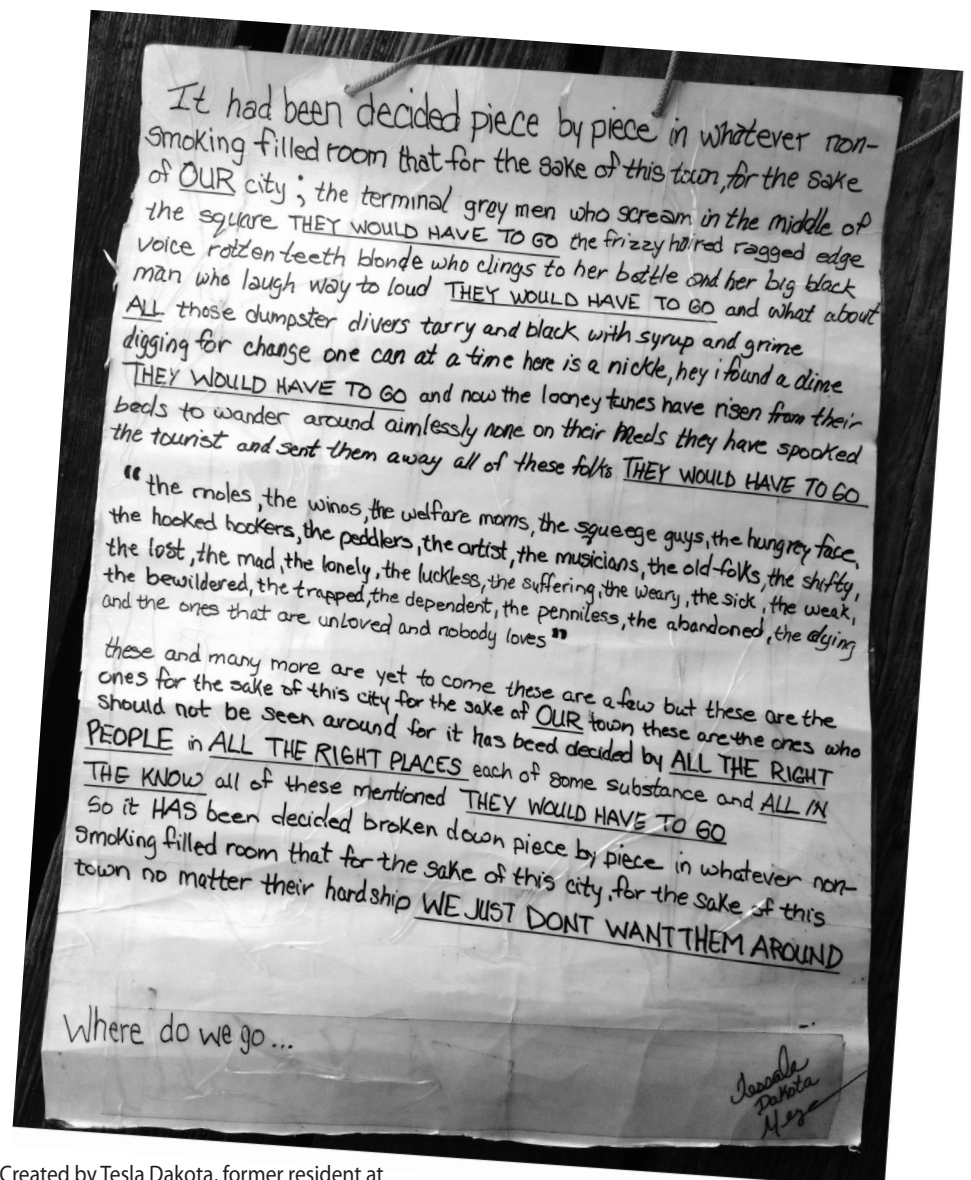 It had been decided piece by piece in whatever non-
smoking filled room that for the sake of this town, for the sake
of OUR city; the terminal grey men who scream in the middle of
the square THEY WOULD HAVE TO GO the frizzy haired ragged edge
voice rotten teeth blonde who clings to her bottle and her big black
man who laugh way to loud THEY WOULD HAVE TO GO and what about
ALL those dumpster divers tarry and black with syrup and grime
digging for change one can at a time here is a nickle, hey i found a dime
THEY WOULD HAVE TO GO and now the looney tunes have risen from their
beds to wander around aimlessly none on their Meds they have spooked
the tourist and sent them away all of these folks THEY WOULD HAVE TO GO
“the moles, the winos, the welfare moms, the squeege guys, the hungrey face,
the hooked hookers, the peddlers, the artist, the musicians, the old-folks, the shifty,
the lost, the mad, the lonely, the luckless, the suffering, the weary, the sick, the weak,
the bewildered, the trapped, the dependent, the penniless, the abandoned, the dying
and the ones that are unloved and nobody loves”
these and many more are yet to come these are a few but these are the
ones for the sake of this city for the sake of OUR town these are the ones who
should not be seen around for it has beed decided by ALL THE RIGHT
PEOPLE in ALL THE RIGHT PLACES each of some substance and ALL IN
THE KNOW all of these mentioned THEY WOULD HAVE TO GO
So it HAS been decided broken down piece by piece in whatever non-
smoking filled room that for the sake of this city, for the sake of this
town no matter their hardship WE JUST DONT WANT THEM AROUND
Where do we go...
Dakota
Created by Tesla Dakota, former resident at